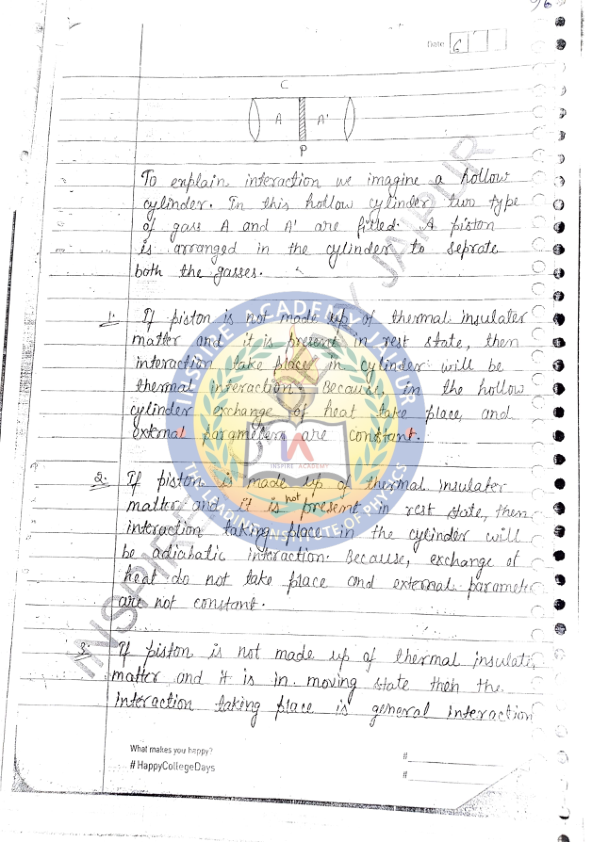 96
Date 6
C
A A'
P
To explain interaction we imagine a hollow
cylinder. In this hollow cylinder two type
of gass A and A' are filled. A piston
is arranged in the cylinder to seprate
both the gasses.
1. If piston is not made up of thermal insulater
matter and it is present in rest state, then
interaction take place in cylinder will be
thermal interaction. Because, in the hollow
cylinder exchange of heat take place, and
external parameters are constant.
2. If piston is made up of thermal insulater
matter and it is not present in rest state, then
interaction taking place in the cylinder will
be adiabatic interaction. Because, exchange of
heat do not take place and external parameter
are not constant.
3. If piston is not made up of thermal insulate
matter and it is in moving state then the
interaction taking place is general interaction
What makes you happy?
#HappyCollegeDays
#
#
INSPIRE ACADEMY JAIPUR
INSPIRE ACADEMY JAIPUR
IA
INSPIRE ACADEMY
THE LEARNING INSTITUTE OF PHYSICS